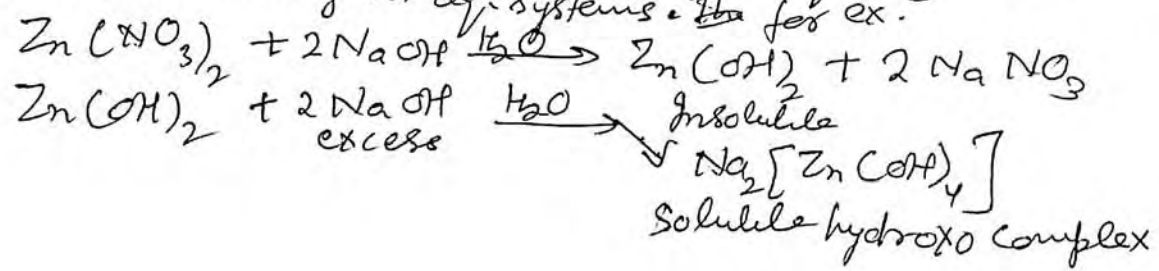 systems. for ex.
Zn(NO3)2 + 2NaOH H2O → Zn(OH)2 + 2NaNO3
Insoluble
Zn(OH)2 + 2NaOH H2O →
excess
Na2[Zn(OH)4]
Soluble hydroxo complex